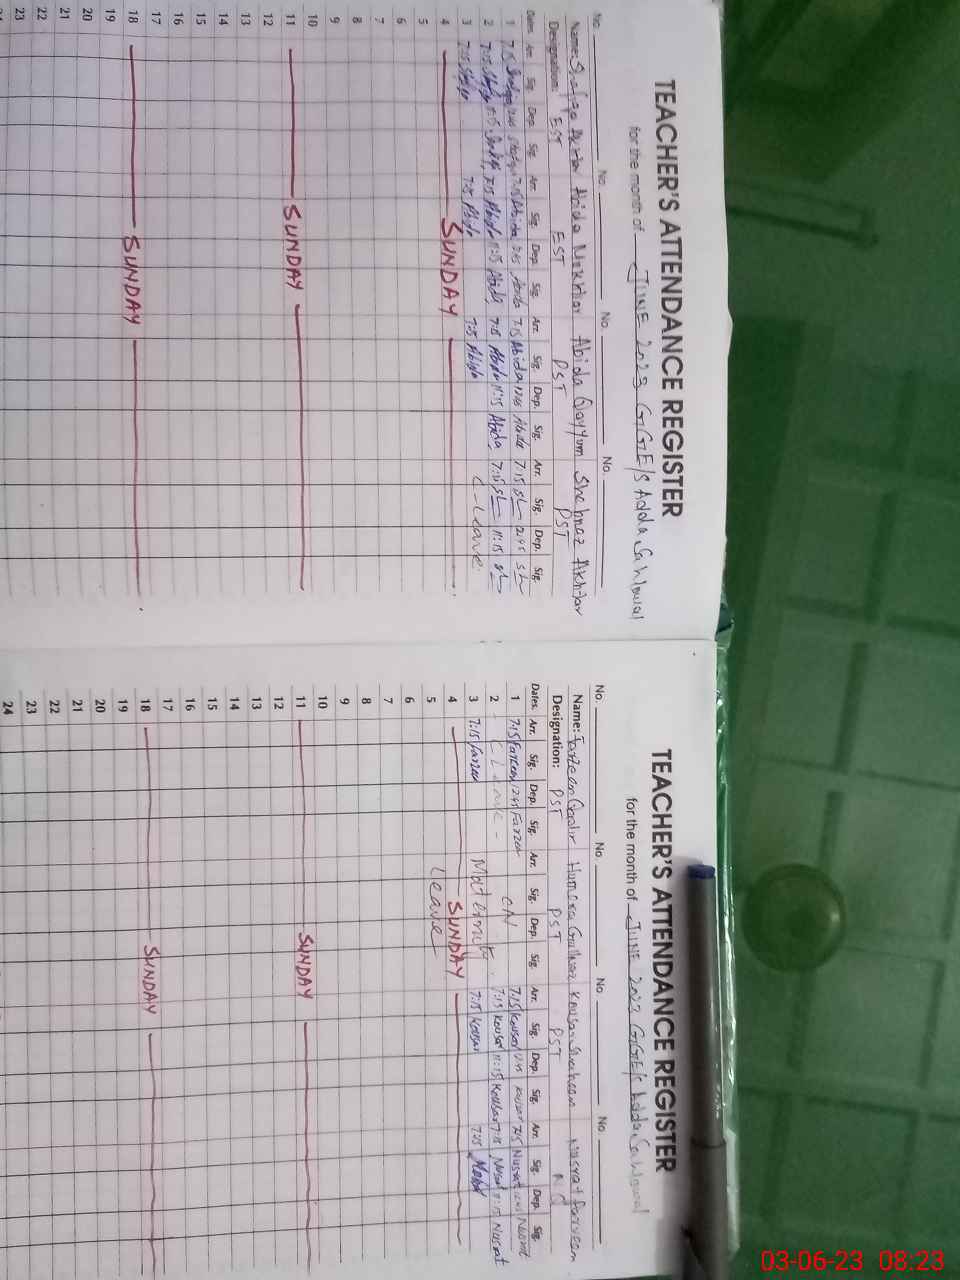 TEACHER'S ATTENDANCE REGISTER
for the month of JUNE 2023 GGE/S Adda Sahiowal
No. No. No. No.
Name: Abida Mukhtar Abida Qayyum Shehnaz Akhtar
Designation: EST EST PST PST
Dates. Arr. Sig. Dep. Sig. Arr. Sig. Dep. Sig. Arr. Sig. Dep. Sig. Arr. Sig. Dep. Sig.
1 7:15 7:15 Abida 7:15 Abida 7:15 12:45
2 7:15 11:15 7:15 Abida 11:15 Abida 7:15 Abida 11:15 Abida 7:15 11:15
3 7:15 7:15 Abida 7:15 Abida C-Leave
4 SUNDAY
5
6
7
8
9
10
11 SUNDAY
12
13
14
15
16
17
18 SUNDAY
19
20
21
22
23
TEACHER'S ATTENDANCE REGISTER
for the month of JUNE 2023 GGE/S Adda Sahiowal
No. No. No. No.
Name: Farzeen Humera Kousar Shaheen Nusrat Parveen
Designation: PST PST PST
Dates. Arr. Sig. Dep. Sig. Arr. Sig. Dep. Sig. Arr. Sig. Dep. Sig. Arr. Sig. Dep. Sig.
1 7:15 Farzeen 12:45 Farzeen 7:15 Kousar Kousar 7:15 Nusrat Nusrat
2 C Leave - 7:15 Kousar 11:15 Kousar 7:15 Nusrat 11:15 Nusrat
3 7:15 Farzeen Maternity 7:15 Kousar 7:15
4 SUNDAY
5 Leave
6
7
8
9
10
11 SUNDAY
12
13
14
15
16
17
18 SUNDAY
19
20
21
22
23
24
03-06-23 08:23